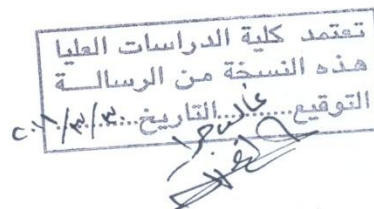 تعتمد كلية الدراسات العليا
هذه النسخة من الرسالـــة
التوقيع.........التاريخ..٣٠/٣/٢٠١١